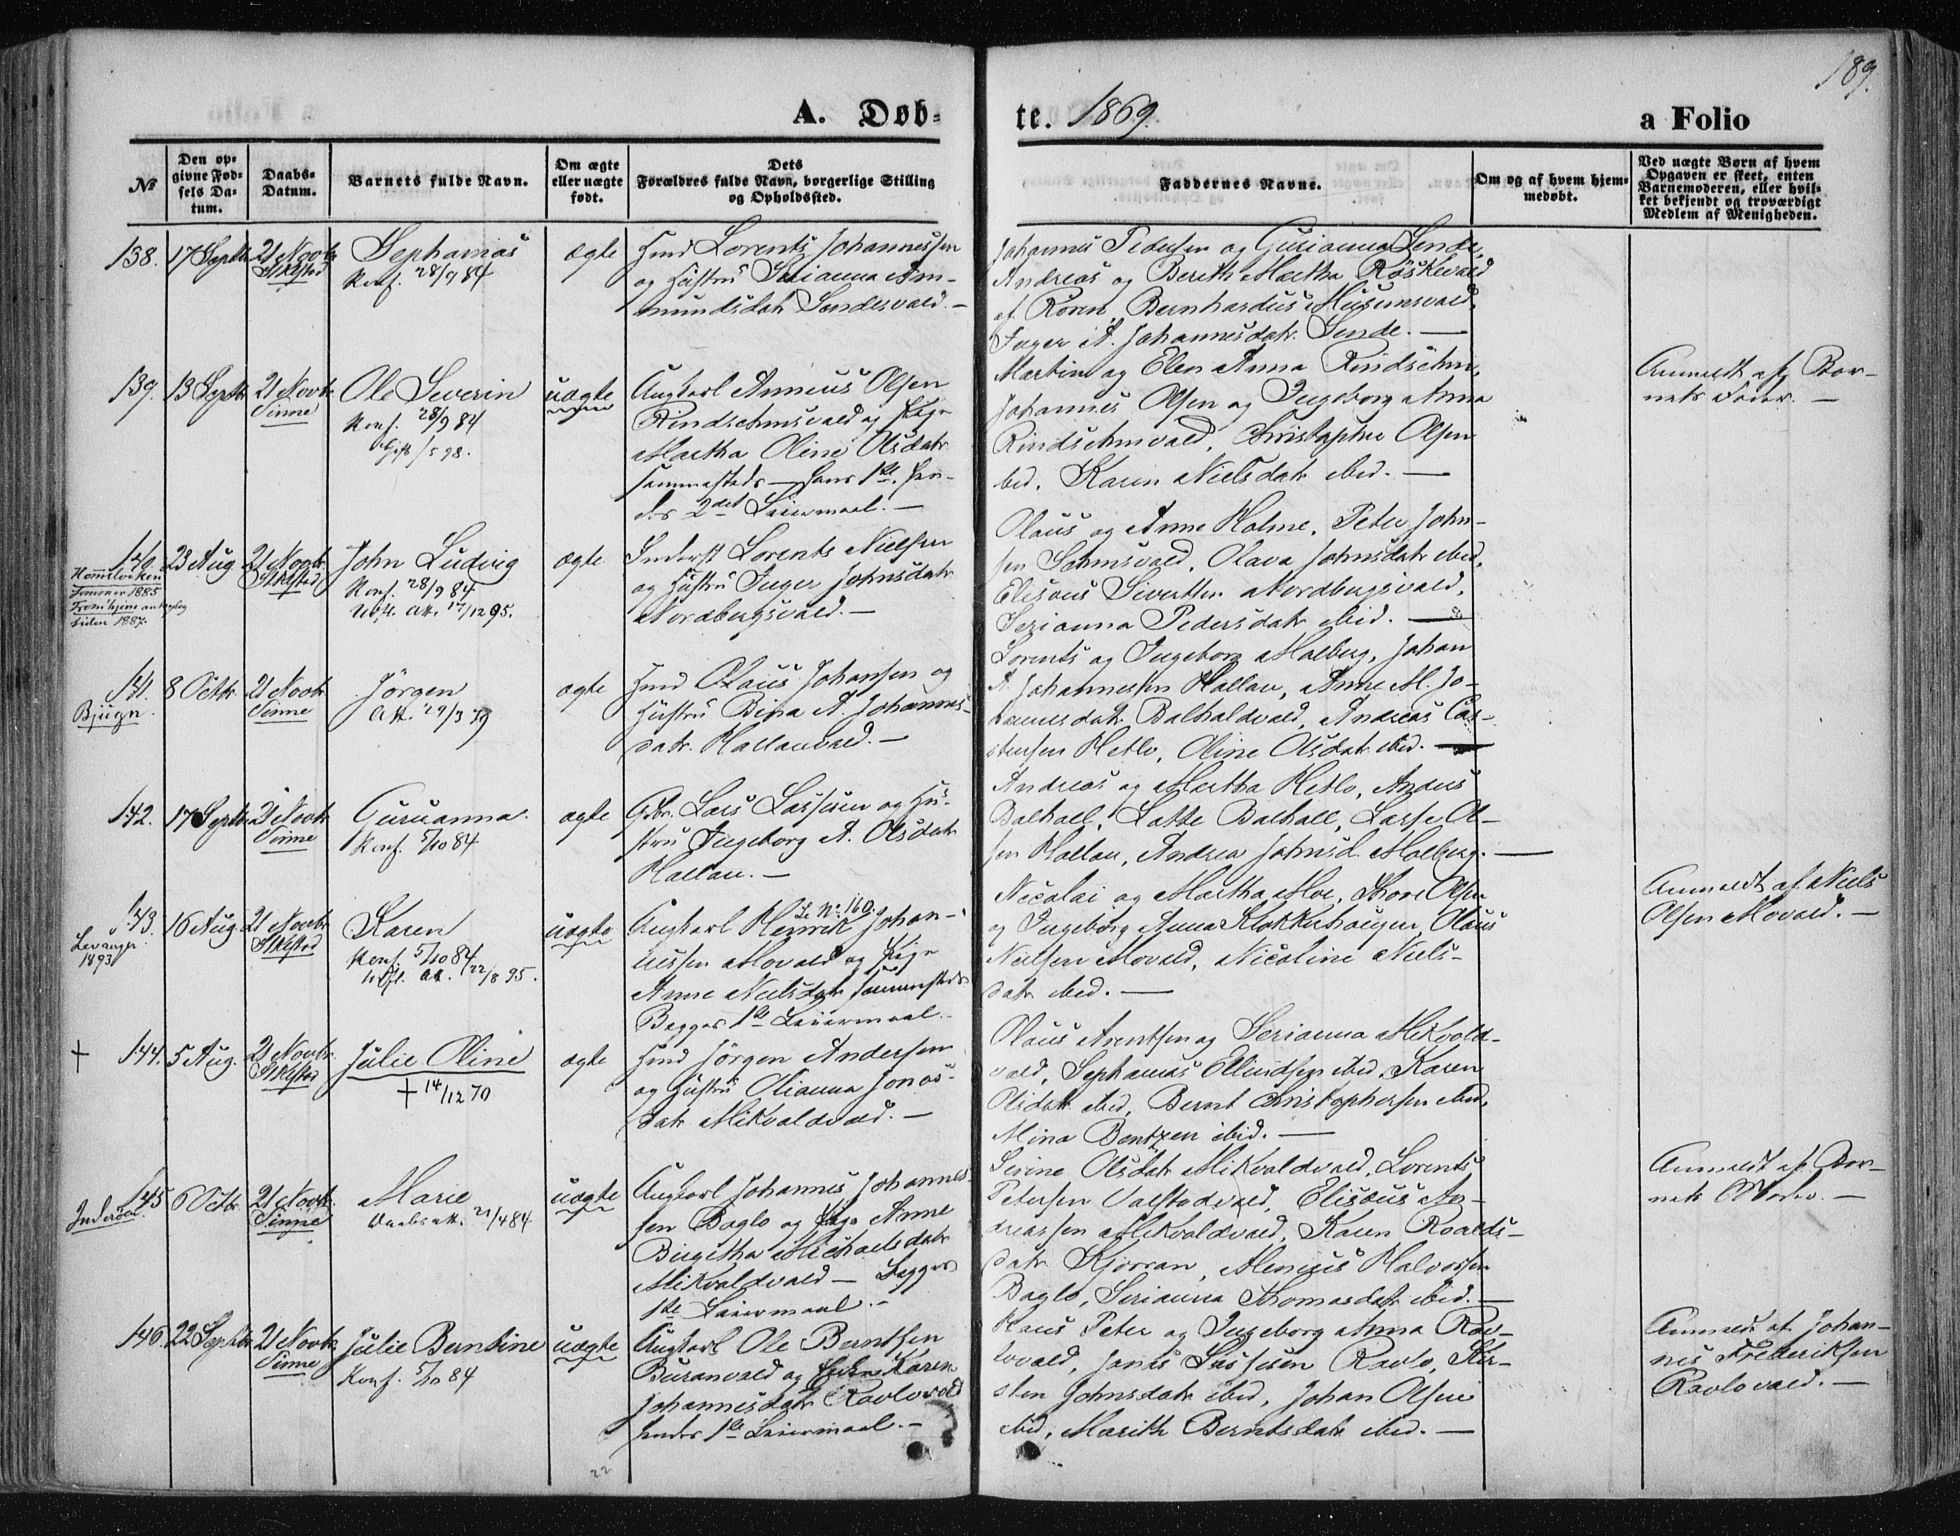 189.
A. Døb-
te. 1869.
a Folio
No
Den op-
givne Fød-
sels Da-
tum.
Daabs-
Datum.
Barnets fulde Navn.
Om ægte
eller uægte
født.
Dets
Forældres fulde Navn, borgerlige Stilling
og Opholdssted.
Faddernes Navne.
Om og af hvem hjem-
medøbt.
Ved uægte Børn af hvem
Opgaven er skeet, enten
Barnemoderen, eller hvil-
ket bekjendt og troværdigt
Medlem af Menigheden.
138. 17 Septbr 21 Novbr Sephanias ægte
Stiklestad
Konf. 28/9 84
Hmd Lorents Johannessen
og Hustru Serianna Am-
mundsdatr Sendesvald. —
Johannes Pedersen og Gurianna Sende,
Andreas og Bereth Martha Röskevald
af Roren, Bernhardus Musumsvald,
Inger A. Johannesdatr Sende. —
139. 13 Septbr 21 Novbr Ole Severin uægte
Vinne
Konf. 28/9 84
Ungkarl Anneus Olsen
Rindsemsvald og Pige
Martha Oline Olsdatr
sammesteds — Hans 1ste, Hen-
des 2det Leiermaal. —
Martin og Elen Anna Rindsem,
Johannes Olsen og Ingeborg Anna
Rindsemvald, Christopher Olsen
ibid, Karen Nielsdatr ibid. —
Anmeldt af Bar-
nets Fader. —
140. 23 Aug 21 Novbr John Ludvig ægte
Stiklestad
Konf. 28/9 84
Utfl. Att. 17/12 95.
Hommelviken
Sommer 1885
siden 1887.
Inderst Lorents Nielsen
og Hustru Inger Johnsdatr
Nordbergsvald. —
Olaus og Anne Holme, Peter John-
sen Holmsvald, Olava Johnsdatr ibid,
Eliseus Sivertsen Nordbergsvald,
Serianna Pedersdatr ibid. —
141. 8 Octbr. 21 Novbr Jørgen ægte
Vinne
Att. 29/3 79
Bjugn.
Hmd Olaus Johansen og
Hustru Bina A. Johannes-
datr. Hallanvald. —
Lorents og Ingeborg Molberg, Johan
A. Johannessen Hallan, Anne M. Jo-
hannesdatr Balhaldvald, Andreas Car-
stensen Hetlo, Oline Olsdatr ibid. —
142. 17 Septbr 21 Novbr Guruanna. ægte
Vinne
Konf. 5/10 84
Gbr. Lars Larssen og Hu-
stru Ingeborg A. Olsdatr
Hallan. —
Andreas og Martha Hetlo, Anders
Balhall, Latte Balhall, Lars Ol-
sen Hallan, Andrea Johnsd. Molberg. —
143. 16 Aug. 21 Novbr Karen uægte
Stiklestad
Konf. 5/10 84
Utfl. Att. 22/8 95.
Levanger
1893
Se No 160.
Ungkarl Henrik Johan-
nessen Movald og Pige
Anne Nielsdatr sammesteds
Begges 1ste Leiermaal. —
Nicolai og Martha Moe, Tore Olsen
og Ingeborg Anna Klokkerhaugen, Olaus
Nielsen Movald, Nicoline Niels-
datr ibid. —
Anmeldt af Niels
Olsen Movald. —
+ 144. 5 Aug. 21 Novbr. Julie Oline ægte
Stiklestad
+ 14/12 70
Hmd Jörgen Andersen
og Hustru Olianna Jonas-
datr Mikvoldvald. —
Olaus Arentsen og Serianna Mikvold-
vald, Sephanias Ellindsen ibid, Karen
Olsdatr ibid, Bernt Christophersen ibid,
Mina Bentzen ibid. —
145 6 Octbr. 21 Novbr. Marie uægte
Vinne
Daabsatt. 21/4 84
Inderøen.
Ungkarl Johannes Johannes-
sen Baglo og Pige Anne
Birgitha Michaelsdatr
Mikvoldvald — Begges
1ste Leiermaal. —
Serine Olsdatr Mikvoldvald, Lorents
Petersen Valstadvald, Elisæus An-
dreassen Mikvoldvald, Karen Roalds-
datr Kjörran, Menius Halvorsen
Baglo, Serianna Thomasdatr ibid. —
Anmeldt af Bar-
nets Moder. —
146. 22 Septbr 21 Novbr Julie Berntine uægte
Vinne
Konf. 5/10 84
Ungkarl Ole Berntsen
Buranvald og Enke Karen
Johannesdatr Ravlovald
Hendes 1ste Leiermaal. —
Hans Peter og Ingeborg Anna Rav-
lovald, Jonas Larssen Ravlo, Kir-
sten Johnsdatr ibid, Johan Olsen
ibid, Marith Berntsdatr ibid. —
Anmeldt af Johan-
nes Frederiksen
Ravlovald. —
22